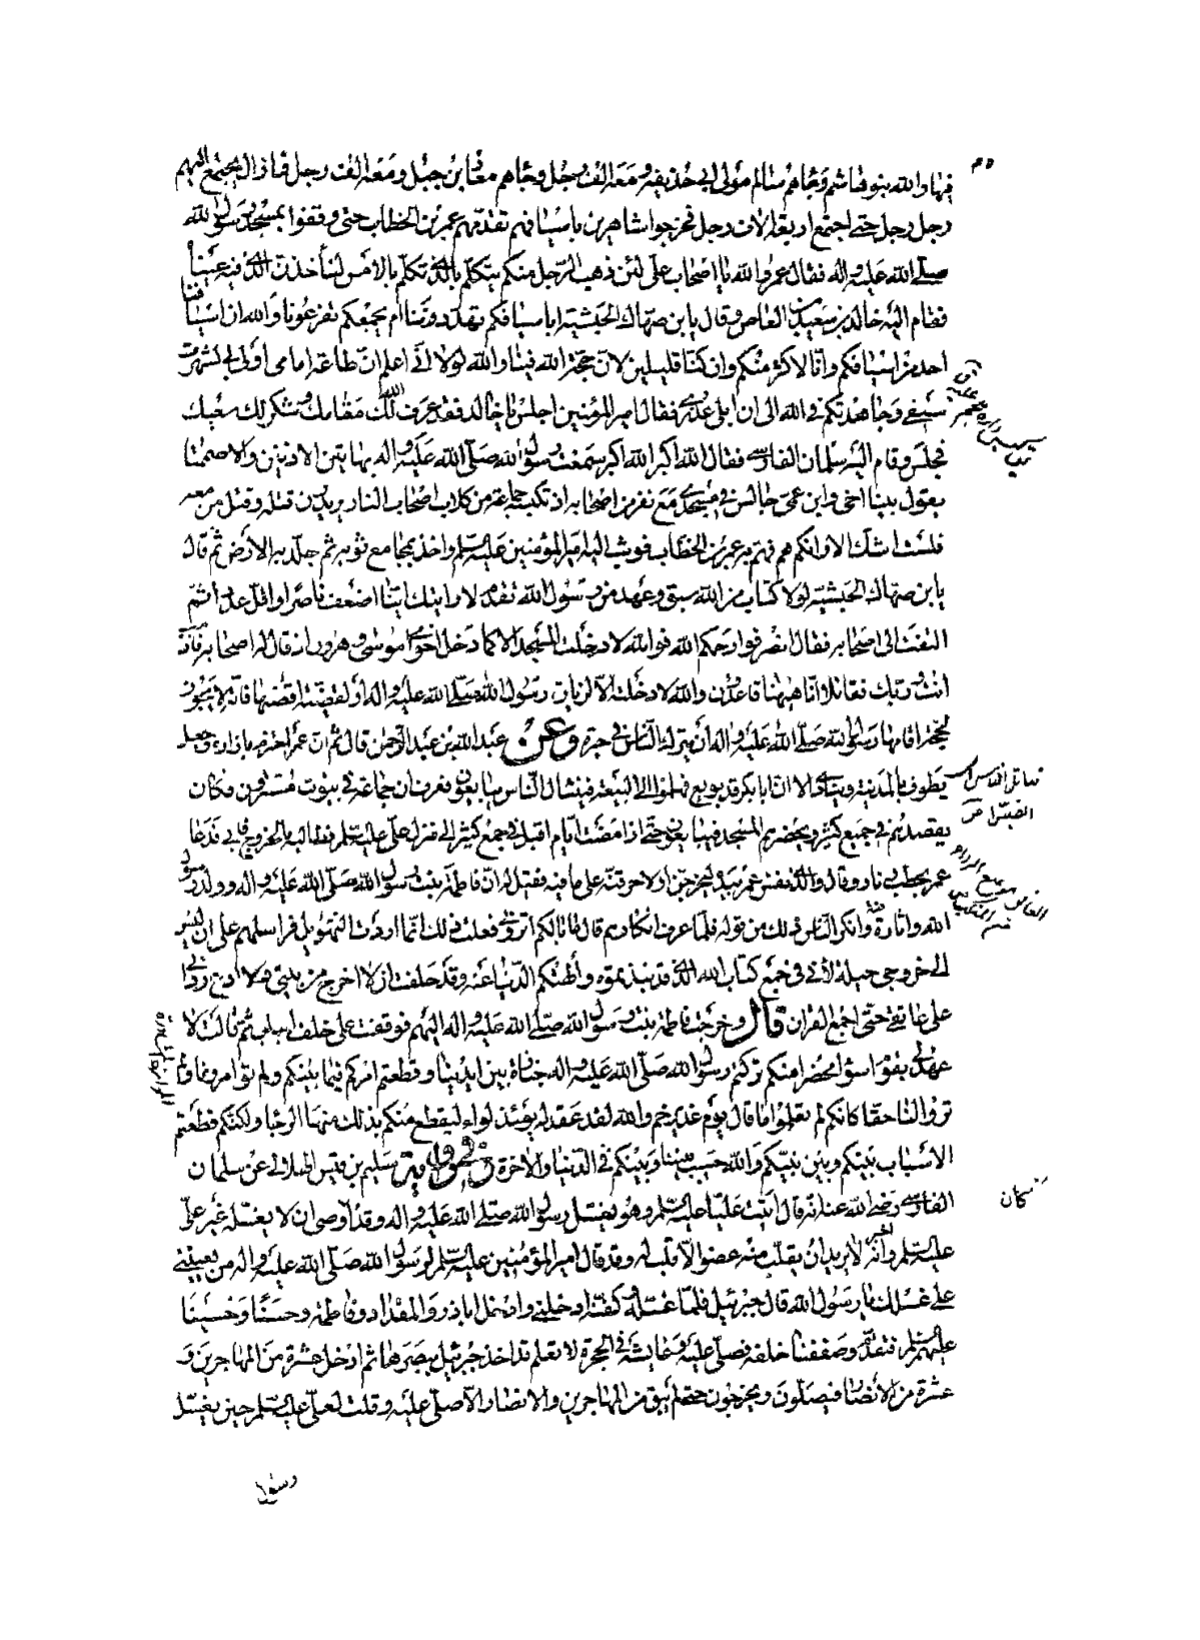 فيها والله بنو هاشم وجاءهم سالم مولى ابى حذيفة ومعه الف رجل وجاءهم معاذ بن جبل ومعه الف رجل فما زال يجتمع اليهم
رجل رجل حتى اجتمع اربعة الاف رجل فخرجوا شاهرين باسيافهم تقدمهم عمر بن الخطاب حتى وقفوا بمسجد رسول الله
صلى الله عليه واله فقال عمر والله يا اصحاب على لئن ذهب الرجل منكم يتكلم بالذى تكلم بالامس لنأخذن الذى فيه عيناه
فقام اليه خالد بن سعيد بن العاص وقال يابن صهاك الحبشية ابا سيافكم تهددوننا ام بجمعكم تفزعونا والله ان اسيافنا
احد من اسيافكم وانا لاكثر منكم وان كنا قليلين لان حجة الله فينا والله لولا انى اعلم ان طاعة امامى اولى بى لشهرت
سيفى وجاهدتكم فى الله الى ان ابلى عذرى فقال امير المؤمنين اجلس يا خالد فقد عرف الله لك مقامك وشكر لك سعيك
فجلس وقام اليه سلمان الفارسى فقال الله اكبر الله اكبر سمعت رسول الله صلى الله عليه واله بهاتين الاذنين والا صمتا
يقول بينا اخى وابن عمى جالس فى مسجدى مع نفر من اصحابه اذ تكبسه جماعة من كلاب اصحاب النار يريدون قتله وقتل من معه
فلست اشك الا وانكم هم فهم به عمر بن الخطاب فوثب اليه امير المؤمنين عليه السلم واخذ بمجامع ثوبه ثم جلد به الارض ثم قال
يابن صهاك الحبشية لولا كتاب من الله سبق وعهد من رسول الله تقدم لاريتك اينا اضعف ناصرا واقل عددا ثم
التفت الى اصحابه فقال انصرفوا رحمكم الله فوالله لا دخلت المسجد الا كما دخل اخواى موسى وهرون اذ قال له اصحابه فاذهب
انت وربك فقاتلا انا ههنا قاعدون والله لا دخلته الا لزيارة رسول الله صلى الله عليه واله او لقضية اقضيها فانه لا يجوز
لحجة اقامها رسول الله صلى الله عليه واله ان يترك الناس فى حيرة وعن عبد الله بن عبد الرحمن قال ثم ان عمر احتزم بازاره وجعل
يطوف بالمدينة وينادى الا ان ابا بكر قد بويع فهلموا الى البيعة فينثال الناس يبايعون فعرف ان جماعة فى بيوت مستترون فكان
يقصدهم فى جمع كثير ويحضرهم المسجد فيبايعون حتى اذا مضت ايام اقبل فى جمع كثير الى منزل على عليه السلم فطالبه بالخروج فابى فدعا
عمر بحطب ونار وقال والذى نفس عمر بيده ليخرجن او لاحرقنه على ما فيه فقيل له ان فاطمة بنت رسول الله صلى الله عليه واله وولد رسول
الله واثاره فيه وانكر الناس ذلك من قوله فلما عرف انكارهم قال ما بالكم اترونى فعلت ذلك انما اردت التهويل فراسلهم على ان ليس
الى خروجى حيلة لانى فى جمع كتاب الله الذى قد نبذتموه والهتكم الدنيا عنه وقد حلفت ان لا اخرج من بيتى ولا ادع ردائى
على عاتقى حتى اجمع القران قال وخرجت فاطمة بنت رسول الله صلى الله عليه واله اليهم فوقفت على خلف الباب ثم قالت لا
عهد لى بقوم اسوأ محضرا منكم تركتم رسول الله صلى الله عليه واله جنازة بين ايدينا وقطعتم امركم فيما بينكم ولم تؤامرونا ولم
تروا لنا حقا كانكم لم تعلموا ما قال يوم غدير خم والله لقد عقد له يومئذ لواء ليقطع منكم بذلك منها الرجا ولكنكم قطعتم
الاسباب بينكم وبين نبيكم والله حسيب بيننا وبينكم فى الدنيا والاخرة وفى رواية سليم بن قيس الهلالى عن سلمان
الفارسى رضى الله عنه انه قال اتيت عليا عليه السلم وهو يغسل رسول الله صلى الله عليه واله وقد اوصى ان لا يغسله غير على
عليه السلم واخبر انه لا يريد ان يقلب منه عضوا الا قلب له وقد قال امير المؤمنين عليه السلم لرسول الله صلى الله عليه واله من يعيننى
على غسلك يا رسول الله قال جبرئيل فلما غسله وكفنه ادخلنى وادخل اباذر والمقداد وفاطمة وحسنا وحسينا
عليهم السلم فتقدم وصففنا خلفه فصلى عليه وعايشة فى الحجرة لا تعلم قد اخذ جبرئيل ببصرها ثم ادخل عشرة من المهاجرين و
عشرة من الانصار فيصلون ويخرجون حتى لم يبق من المهاجرين والانصار الا صلى عليه وقلت لعلى عليه السلم حين يغسل
فكان
رسول